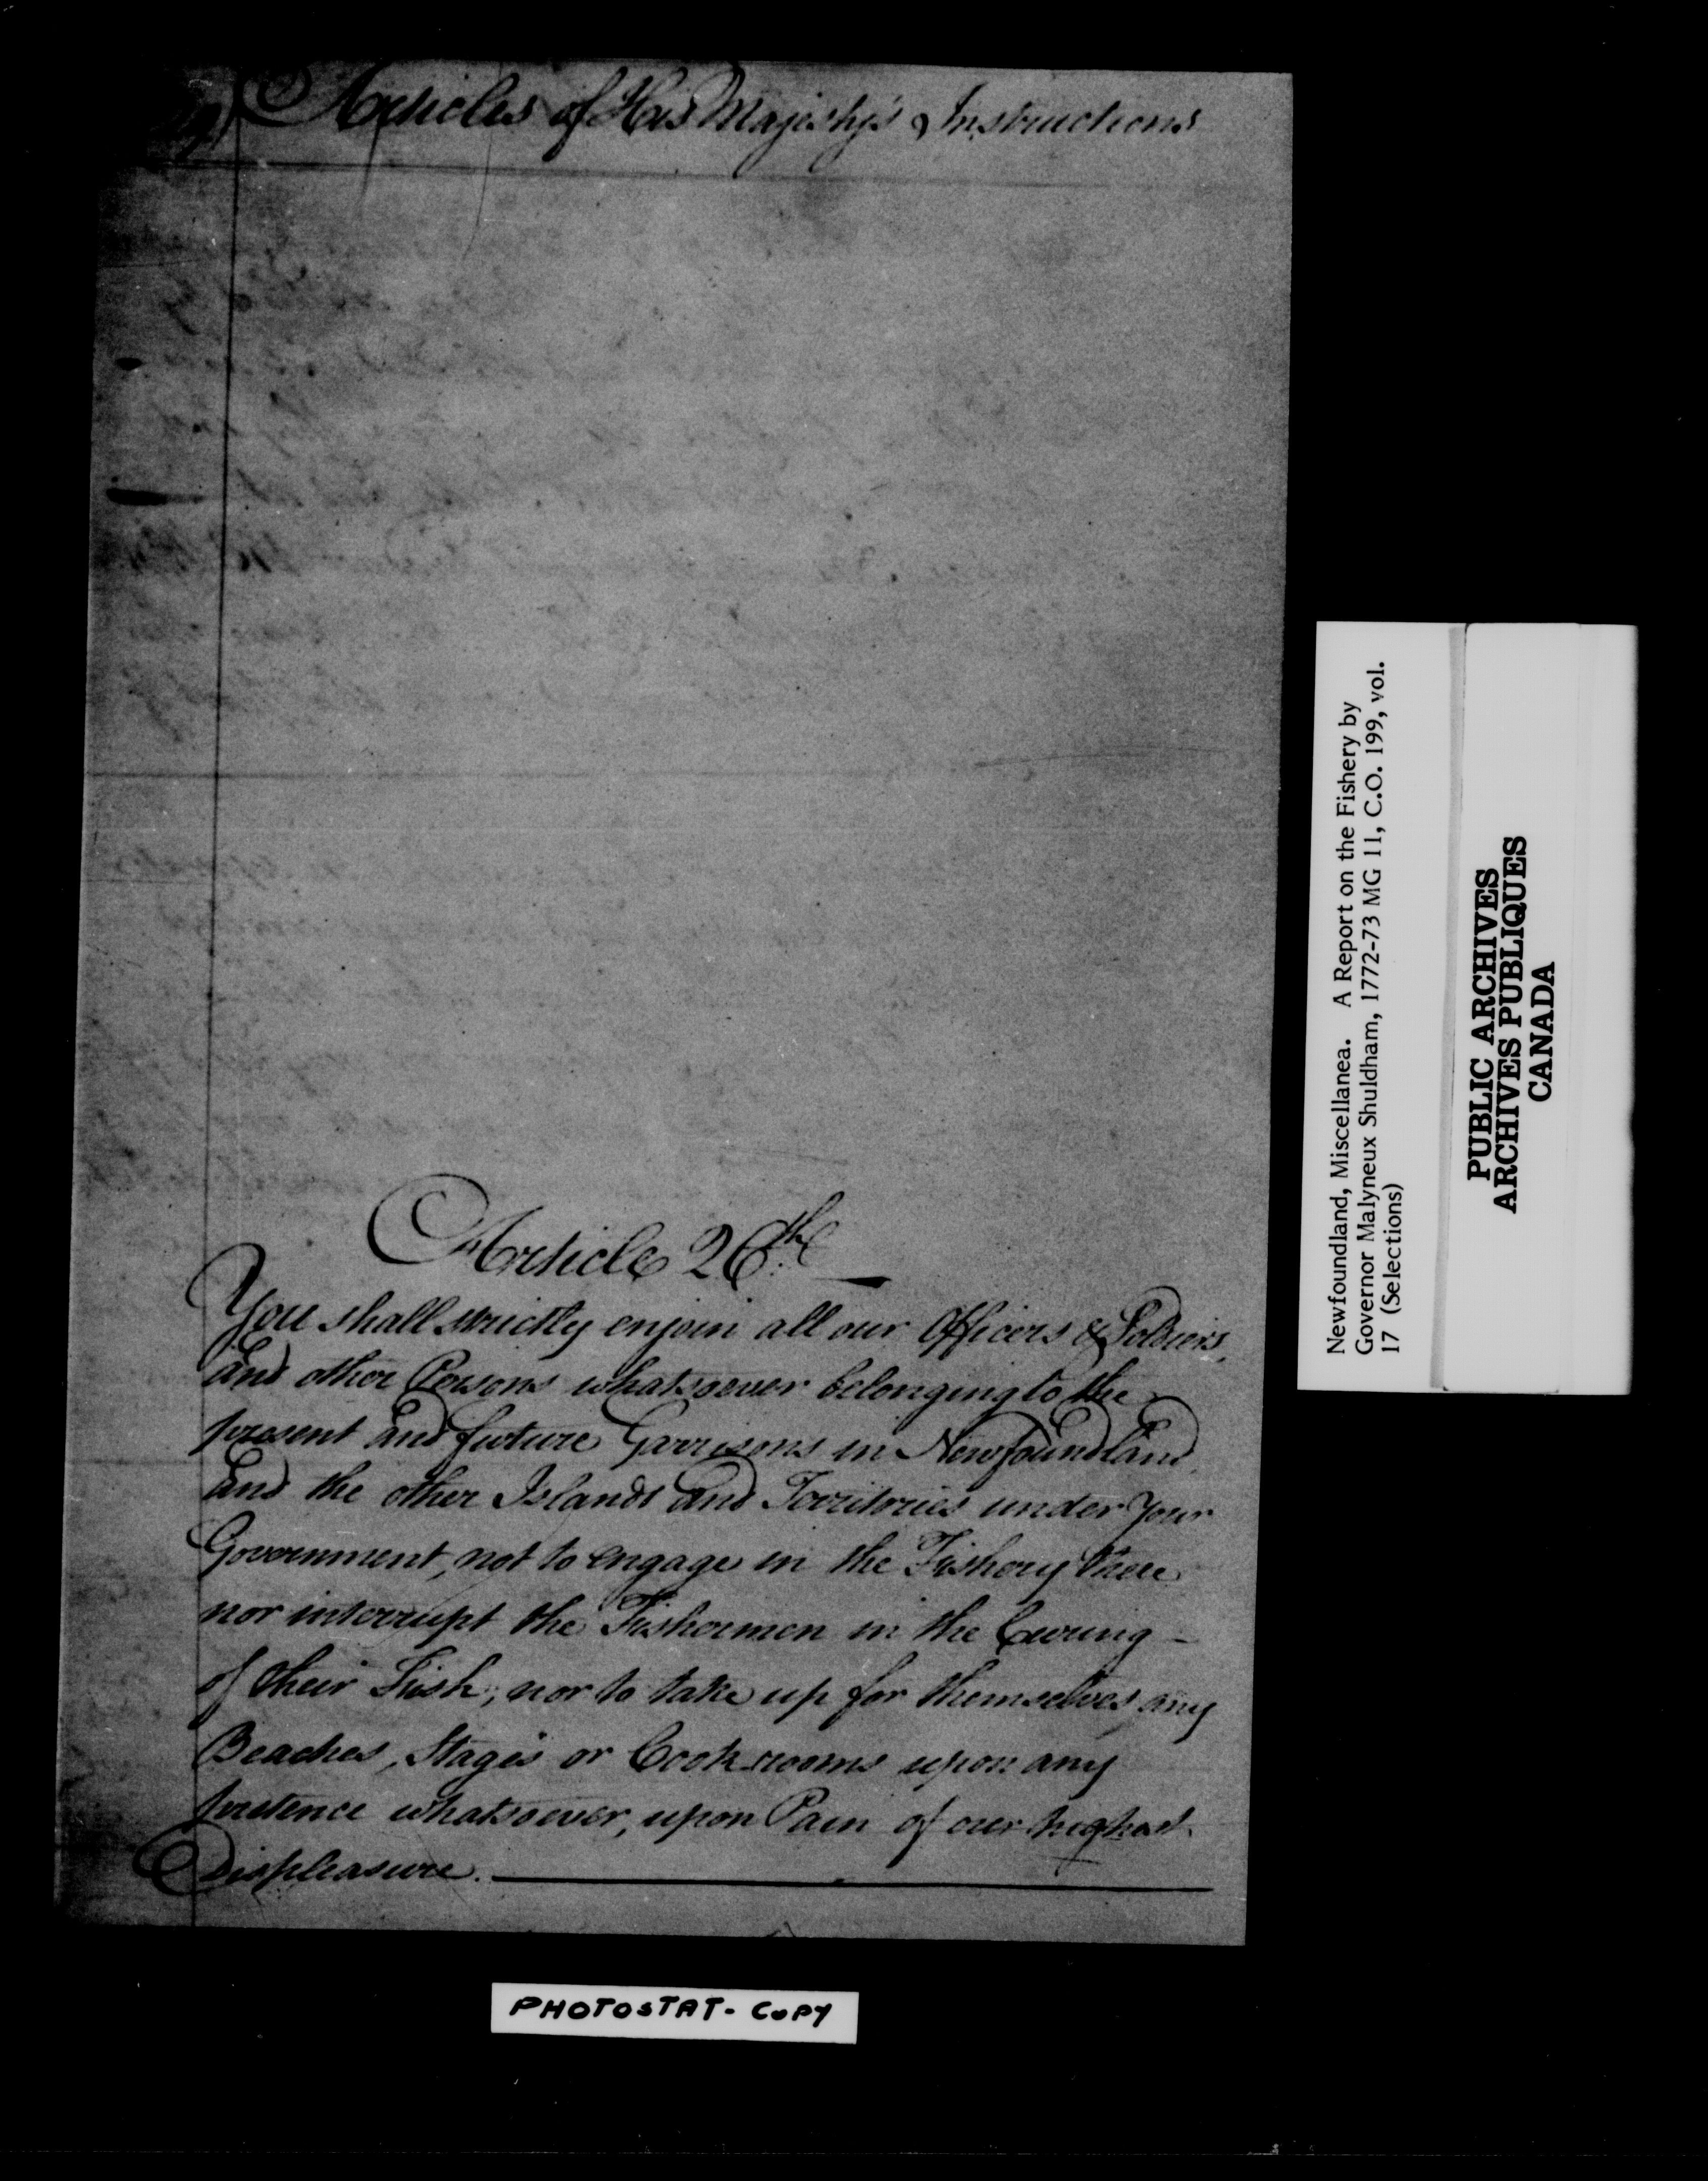 Articles of His Majesty's Instructions
Article 26th
You shall strictly enjoin all our Officers & Soldiers,
and other Persons whatsoever belonging to the
present and future Garrisons in Newfoundland
and the other Islands and Territories under your
Government, not to engage in the Fishery there
nor interrupt the Fishermen in the Curing -
of their Fish, nor to take up for themselves any
Beaches, Stages or Cookrooms upon any
pretence whatsoever, upon Pain of our highest
Displeasure.
Newfoundland, Miscellanea. A Report on the Fishery by
Governor Malyneux Shuldham, 1772-73 MG 11, C.O. 199, vol.
17 (Selections)
PUBLIC ARCHIVES
ARCHIVES PUBLIQUES
CANADA
PHOTOSTAT- COPY